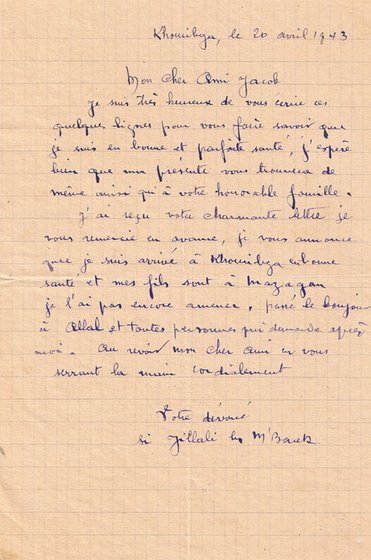 Khouribga, le 20 avril 1943
Mon cher Ami Jacob
je suis très heureux de vous ecrire ces
quelques lignes pour vous faire savoir que
je suis en bonne et parfaite santé, j'espère
bien que ma présente vous trouvera de
même ainsi qui à votre honorable famille.
J'ai reçu votre charmante lettre je
vous remercie en avance, je vous annonce
que je suis arrivé à Khouribga en bonne
santé et mes fils sont à Mazagan
je l'ai pas encore amener, passé le bonjour
à Allal et toutes personnes qui demande après
moi. Au revoir mon cher ami en vous
serrant la main cordialement
Votre dévoué
si Jillali M'Barek